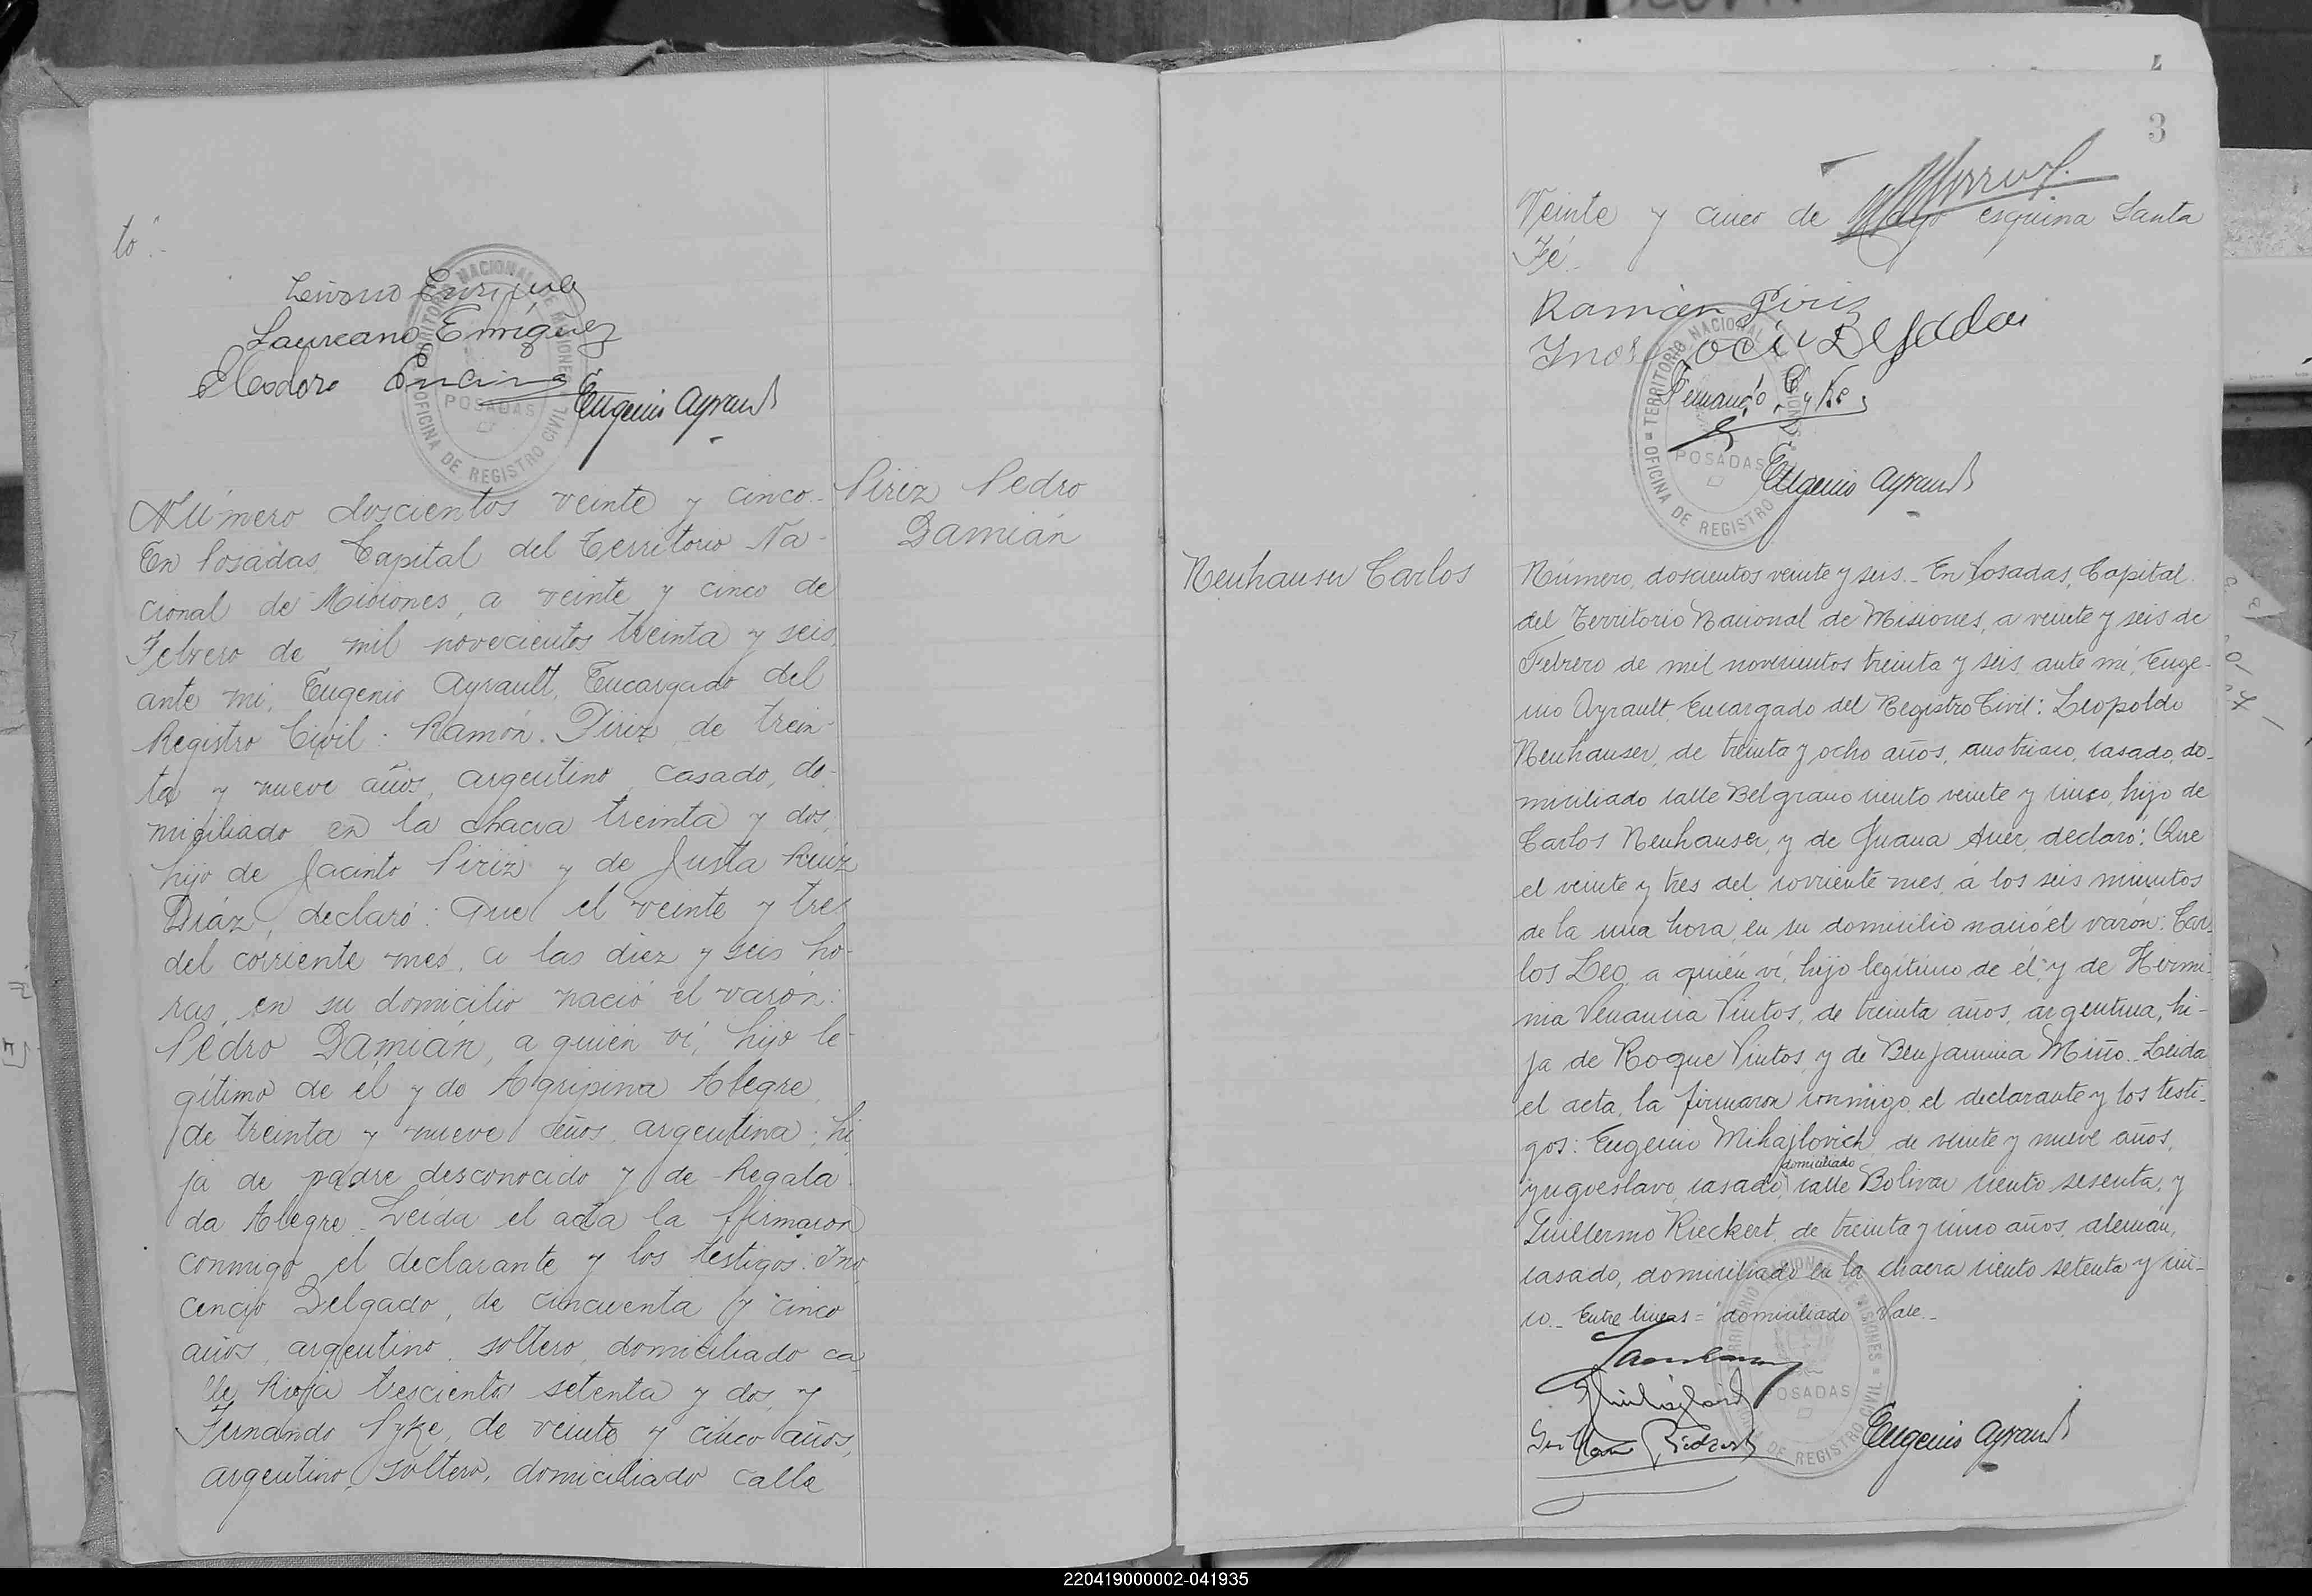 to".-
Laureano Enriquez
Eleodoro Encina
Eugenio Ayrault
TERRITORIO NACIONAL DE MISIONES
POSADAS
OFICINA DE REGISTRO CIVIL
Número doscientos veinte y cinco.-
En Posadas, Capital del Territorio Na-
cional de Misiones, a veinte y cinco de
Febrero de mil novecientos treinta y seis,
ante mi, Eugenio Ayrault, Encargado del
Registro Civil: Ramón Piriz, de trein-
ta y nueve años, argentino, casado, do-
miciliado en la chacra treinta y dos,
hijo de Jacinto Piriz y de Justa Ruiz
Diáz, declaró: Que el veinte y tres
del corriente mes, a las diez y seis ho-
ras, en su domicilio nació el varón:
Pedro Damián, a quien ví, hijo le-
gítimo de él y de Agripina Alegre,
de treinta y nueve años, argentina, hi
ja de padre desconocido y de Regala
da Alegre. Leida el acta la firmaron
conmigo el declarante y los testigos: Ino
cencio Delgado, de cincuenta y cinco
años, argentino, soltero, domiciliado ca
lle Rioja trescientos setenta y dos, y
Fernando Syke, de veinte y cinco años,
argentino, soltero, domiciliado calle
Piriz Pedro
Damián
3
Veinte y cinco de Mayo esquina Santa
Fé.-
Ramón Piriz
Inocencio Delgado
Fernando Syke
Eugenio Ayrault
TERRITORIO NACIONAL
POSADAS
OFICINA DE REGISTRO
Neuhauser Carlos
Número, doscientos veinte y seis.- En Posadas, Capital
del Territorio Nacional de Misiones, a veinte y seis de
Febrero de mil novecientos treinta y seis, ante mí, Euge-
nio Ayrault, Encargado del Registro Civil: Leopoldo
Neuhauser, de treinta y ocho años, austriaco, casado, do-
miciliado calle Belgrano ciento veinte y cinco, hijo de
Carlos Neuhauser, y de Juana Auer, declaró: Que
el veinte y tres del corriente mes, á los seis minutos
de la una hora, en su domicilio nació el varón: Car-
los Leo, a quién ví, hijo legítimo de él y de Hermi-
nia Venancia Pintos, de treinta años, argentina, hi-
ja de Roque Pintos, y de Benjamina Miño.- Leida
el acta, la firmaron conmigo el declarante y los testi-
gos: Eugenio Mihajlovich, de veinte y nueve años,
domiciliado
yugoeslavo, casado, calle Bolivar ciento sesenta, y
Guillermo Rieckert, de treinta y cinco años, alemán,
casado, domiciliado en la chacra ciento setenta y cin-
co.- Entre lineas = domiciliado Vale.-
Eugenio Ayrault
POSADAS
DE REGISTRO CIVIL
220419000002-041935